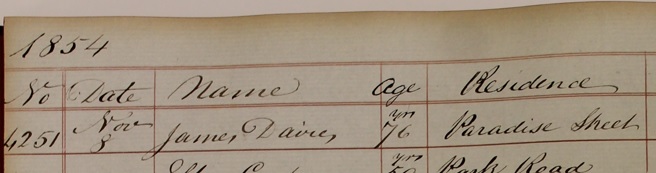 1854
No Date Name Age Residence
4251 Nov 8 James Davies 76 yrs Paradise Street
yrs Park Road